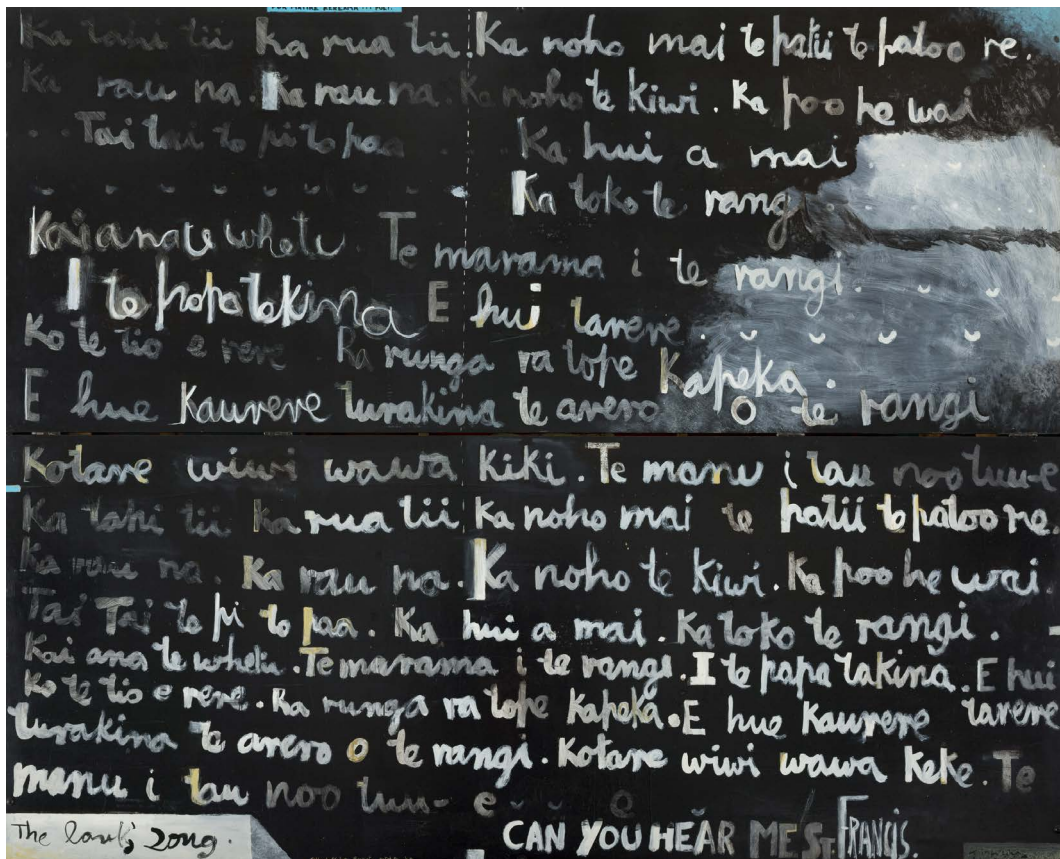 Ka tahi tii Ka rua tii Ka noho mai te patii te patoo re.
Ka rau na. Ka rau na. Ka noho te kiwi. Ka poo he wai
Tai tai te pi te paa Ka hui a mai
Ka toko te rangi
Kai ana te whetu. Te marama i te rangi.
I te papa te kina E hui tarere.
Ko te tio e rere Ra runga ra tope Kapeka.
E hue Kaurere turakina te arero o te rangi
Kotare wiwi wawa kiki. Te manu i tau noo tuu-e
Ka tahi tii Ka rua tii Ka noho mai te patii te patoo re.
Ka rau na. Ka rau na. Ka noho te kiwi. Ka poo he wai.
Tai Tai te pi te paa. Ka hui a mai. Ka toko te rangi.
Kai ana te whetu. Te marama i te rangi. I te papa takina. E hui
Ko te tio e rere. Ra runga ra tope Kapeka. E hue Kaurere tarere
turakina te arero o te rangi. Kotare wiwi wawa keke. Te
manu i tau noo tuu- e - - e
The lark's song.
CAN YOU HEAR ME ST. FRANCIS.